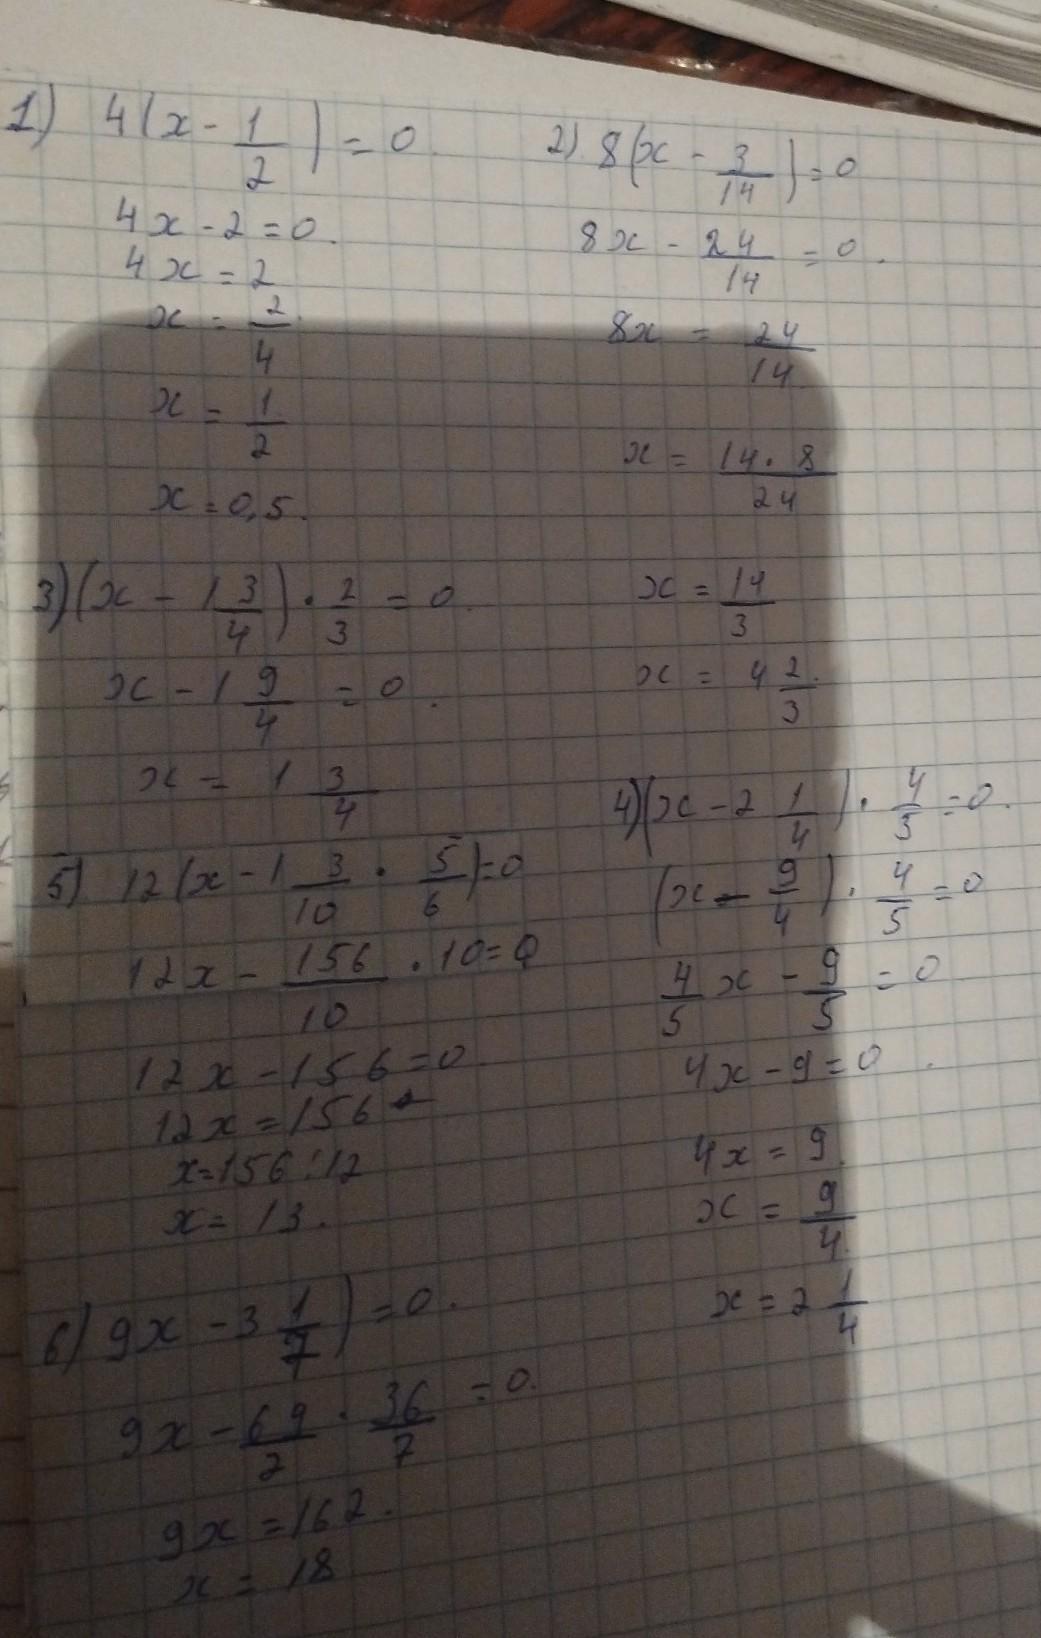 1) 4(x - 1/2) = 0.
4x - 2 = 0.
4x = 2
x = 2/4
x = 1/2
x = 0,5.
2) 8(x - 3/14) = 0
8x - 24/14 = 0.
8x = 24/14
x = 14·8/24
x = 14/3
x = 4 2/3
3) (x - 1 3/4) · 2/3 = 0.
x - 1 9/4 = 0.
x = 1 3/4
4) (x - 2 1/4) · 4/5 = 0.
(x - 9/4) · 4/5 = 0
4/5 x - 9/5 = 0
4x - 9 = 0.
4x = 9.
x = 9/4
x = 2 1/4
5) 12(x - 1 3/10 · 5/6) = 0
12x - 156/10 · 10 = 0
12x - 156 = 0.
12x = 156
x = 156 : 12
x = 13.
6) 9x - 3 1/7) = 0.
9x - 69/2 · 36/7 = 0.
9x = 162.
x = 18